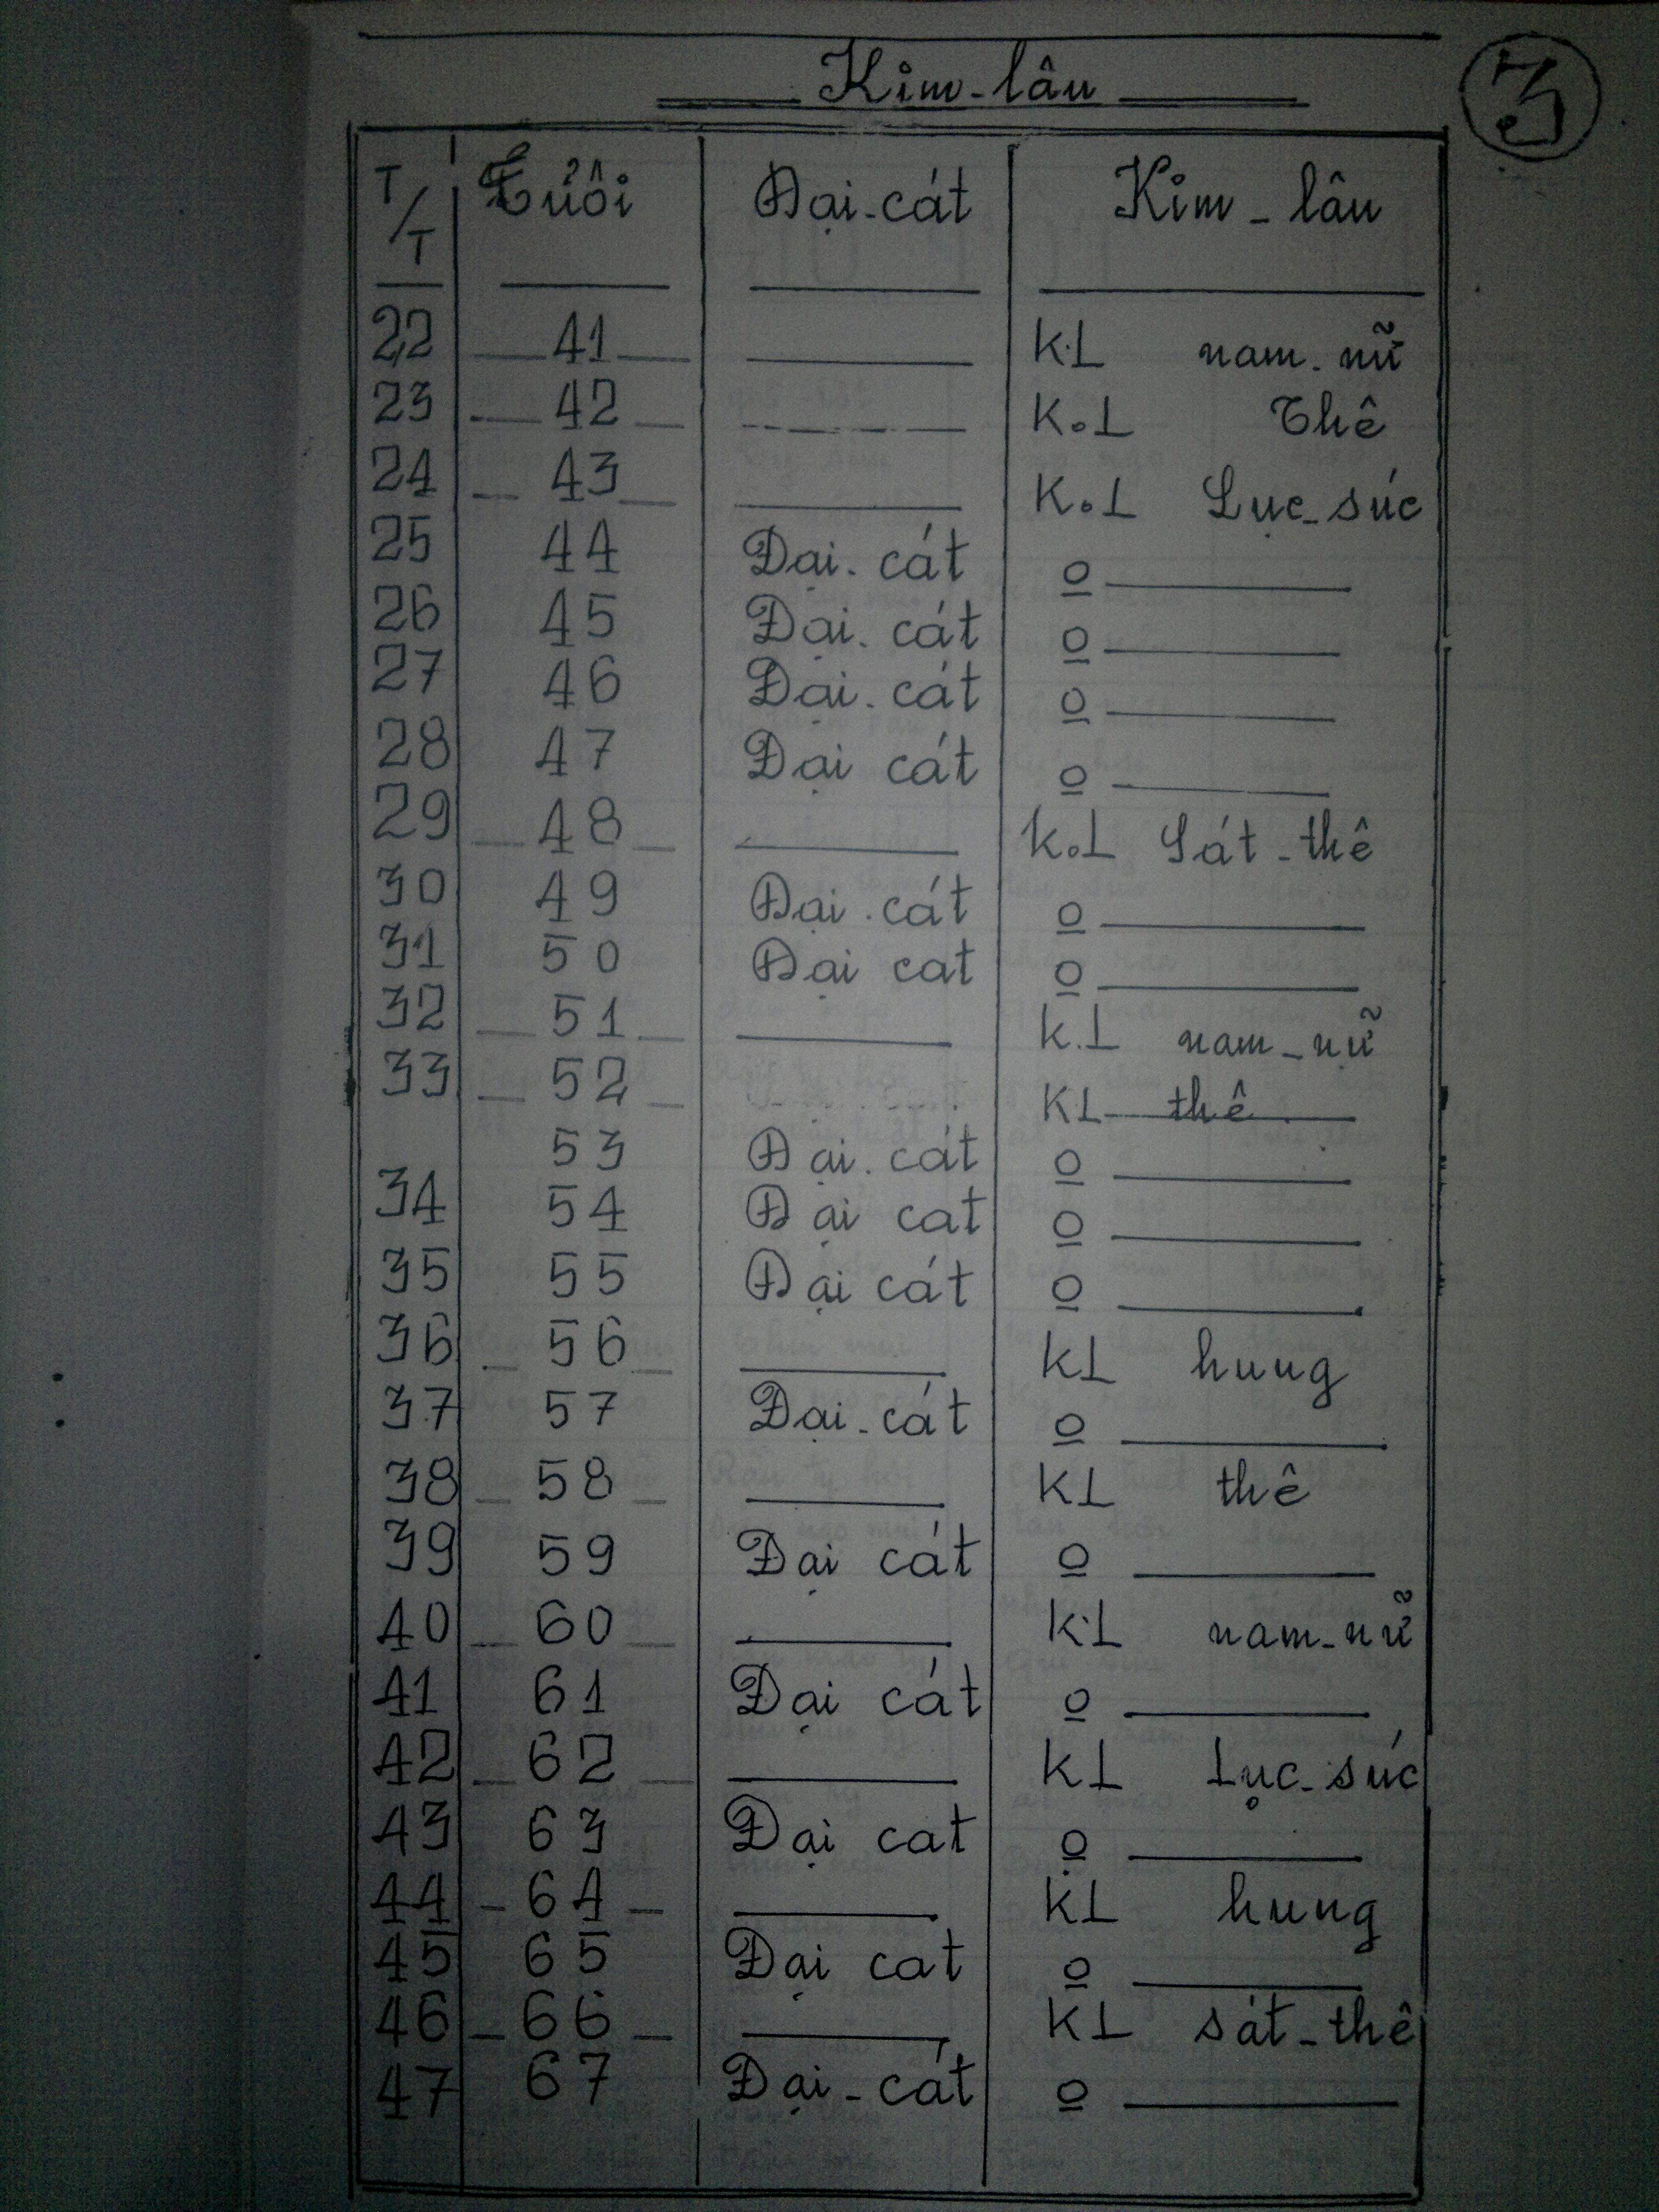 Kim-lâu
3
T/T Tuổi Đại-cát Kim-lâu
22 41 K.L nam-nữ
23 42 K.L Thê
24 43 K.L Lục-súc
25 44 Đại.cát 0
26 45 Đại.cát 0
27 46 Đại.cát 0
28 47 Đại cát 0
29 48 K.L Sát-thê
30 49 Đại.cát 0
31 50 Đại cat 0
32 51 K.L nam-nữ
33 52 KL thê
53 Đại.cát 0
34 54 Đại cat 0
35 55 Đại cát 0
36 56 KL hung
37 57 Đại-cát 0
38 58 KL thê
39 59 Đại cát 0
40 60 K.L nam-nữ
41 61 Đại cát 0
42 62 KL Lục-súc
43 63 Đại cat 0
44 64 KL hung
45 65 Đại cat 0
46 66 KL sát-thê
47 67 Đại-cát 0